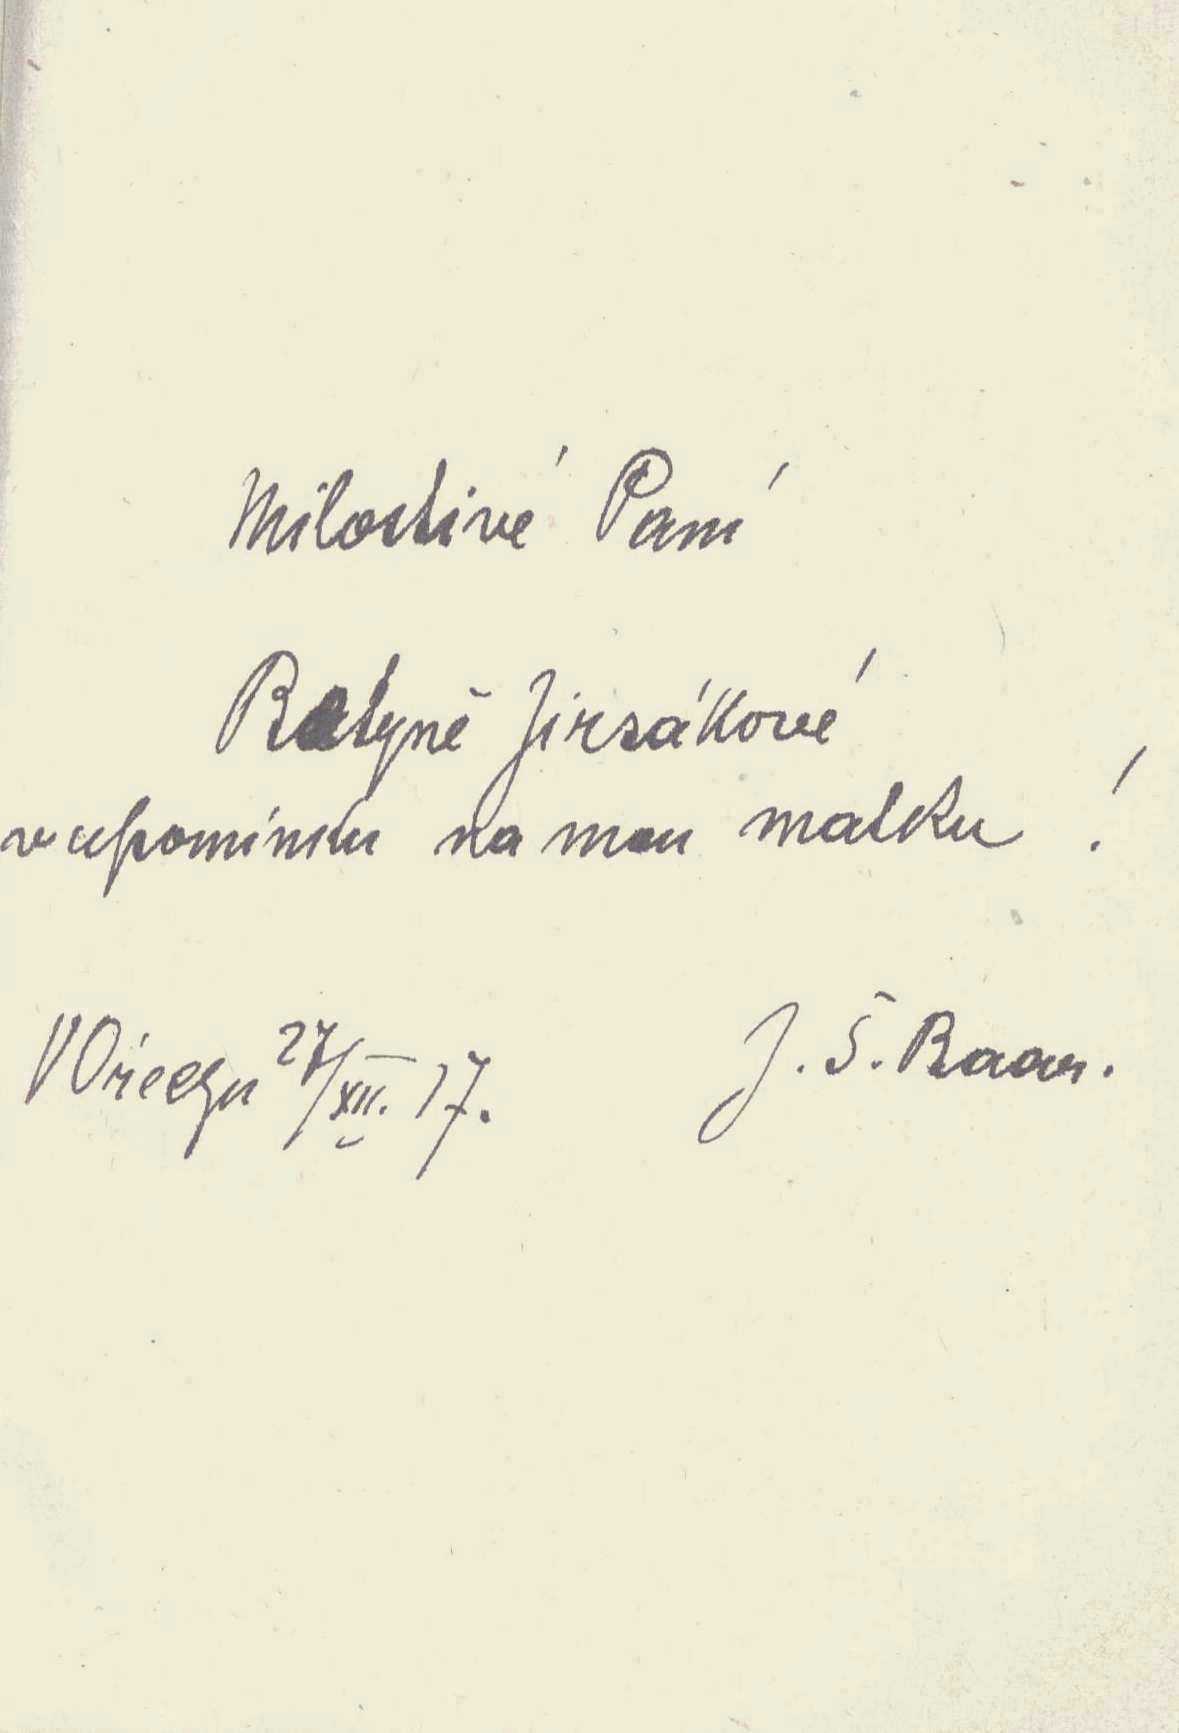 Milostivé Paní
Betyně Jirsákové
v upomínku na mou matku!
V Ořechu 27/XII. 17. J. Š. Baar.